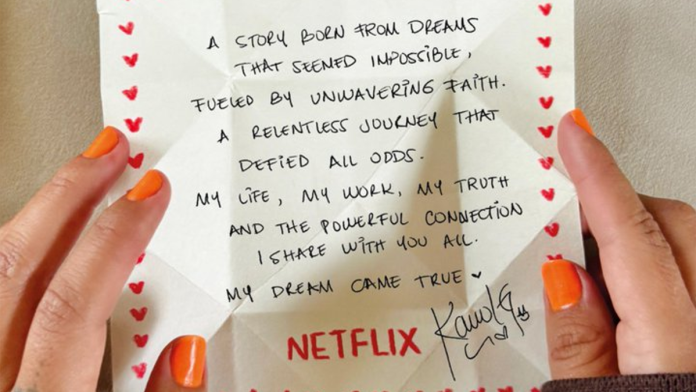 A STORY BORN FROM DREAMS
THAT SEEMED IMPOSSIBLE,
FUELED BY UNWAVERING FAITH.
A RELENTLESS JOURNEY THAT
DEFIED ALL ODDS.
MY LIFE, MY WORK, MY TRUTH
AND THE POWERFUL CONNECTION
I SHARE WITH YOU ALL.
MY DREAM CAME TRUE ♥
NETFLIX Karol G